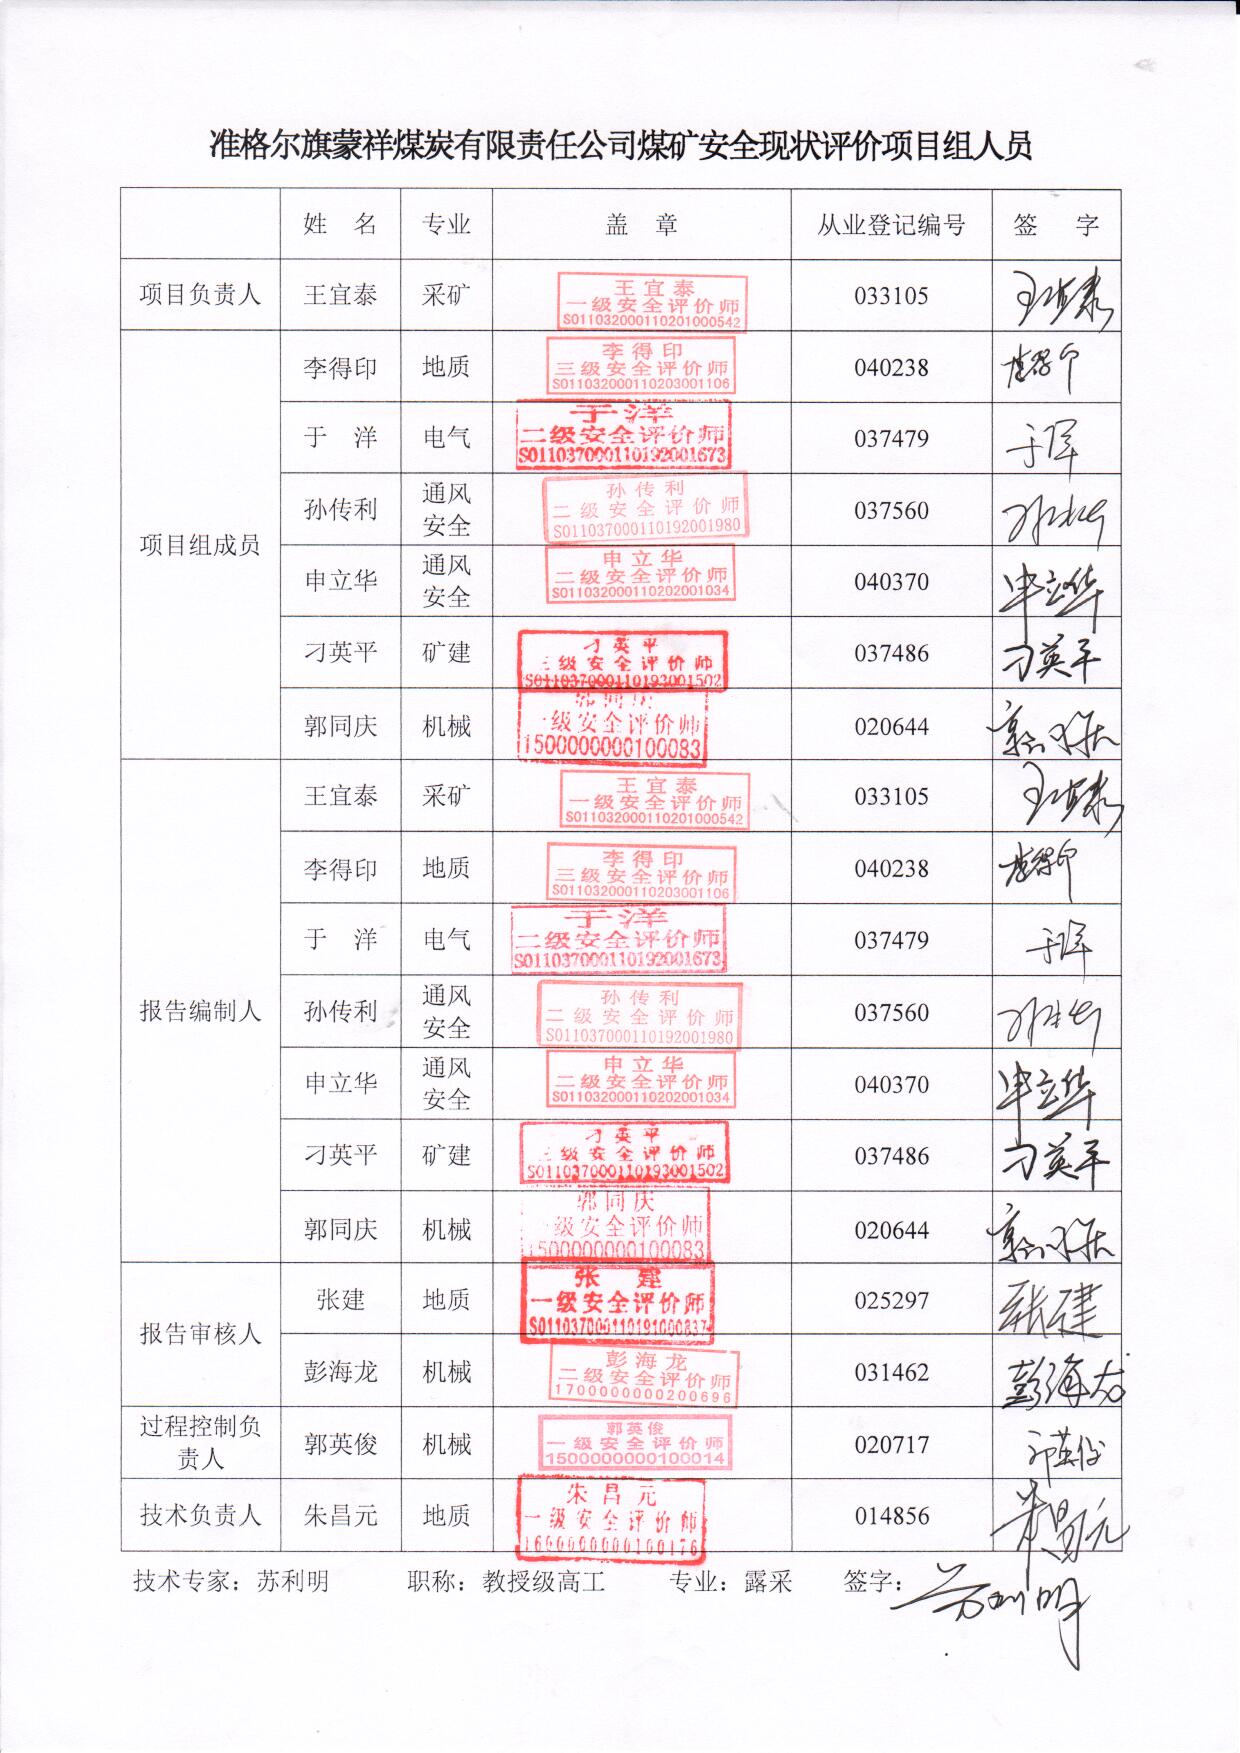 准格尔旗蒙祥煤炭有限责任公司煤矿安全现状评价项目组人员
姓 名 专业 盖 章 从业登记编号 签 字
项目负责人 王宜泰 采矿 王宜泰 一级安全评价师 S011032000110201000542 033105 王宜泰
项目组成员
李得印 地质 李得印 三级安全评价师 S011032000110203001106 040238 李得印
于 洋 电气 于洋 二级安全评价师 S011037000110192001673 037479 于洋
孙传利 通风安全 孙传利 二级安全评价师 S011037000110192001980 037560 孙传利
申立华 通风安全 申立华 二级安全评价师 S011032000110202001034 040370 申立华
刁英平 矿建 刁英平 三级安全评价师 S011037000110193001502 037486 刁英平
郭同庆 机械 郭同庆 一级安全评价师 1500000000100083 020644 郭同庆
报告编制人
王宜泰 采矿 王宜泰 一级安全评价师 S011032000110201000542 033105 王宜泰
李得印 地质 李得印 三级安全评价师 S011032000110203001106 040238 李得印
于 洋 电气 于洋 二级安全评价师 S011037000110192001673 037479 于洋
孙传利 通风安全 孙传利 二级安全评价师 S011037000110192001980 037560 孙传利
申立华 通风安全 申立华 二级安全评价师 S011032000110202001034 040370 申立华
刁英平 矿建 刁英平 三级安全评价师 S011037000110193001502 037486 刁英平
郭同庆 机械 郭同庆 一级安全评价师 1500000000100083 020644 郭同庆
报告审核人
张建 地质 张建 一级安全评价师 S011037000110191000837 025297 张建
彭海龙 机械 彭海龙 二级安全评价师 1700000000200696 031462 彭海龙
过程控制负责人 郭英俊 机械 郭英俊 一级安全评价师 1500000000100014 020717 郭英俊
技术负责人 朱昌元 地质 朱昌元 一级安全评价师 1600000000100176 014856 朱昌元
技术专家：苏利明 职称：教授级高工 专业：露采 签字：苏利明